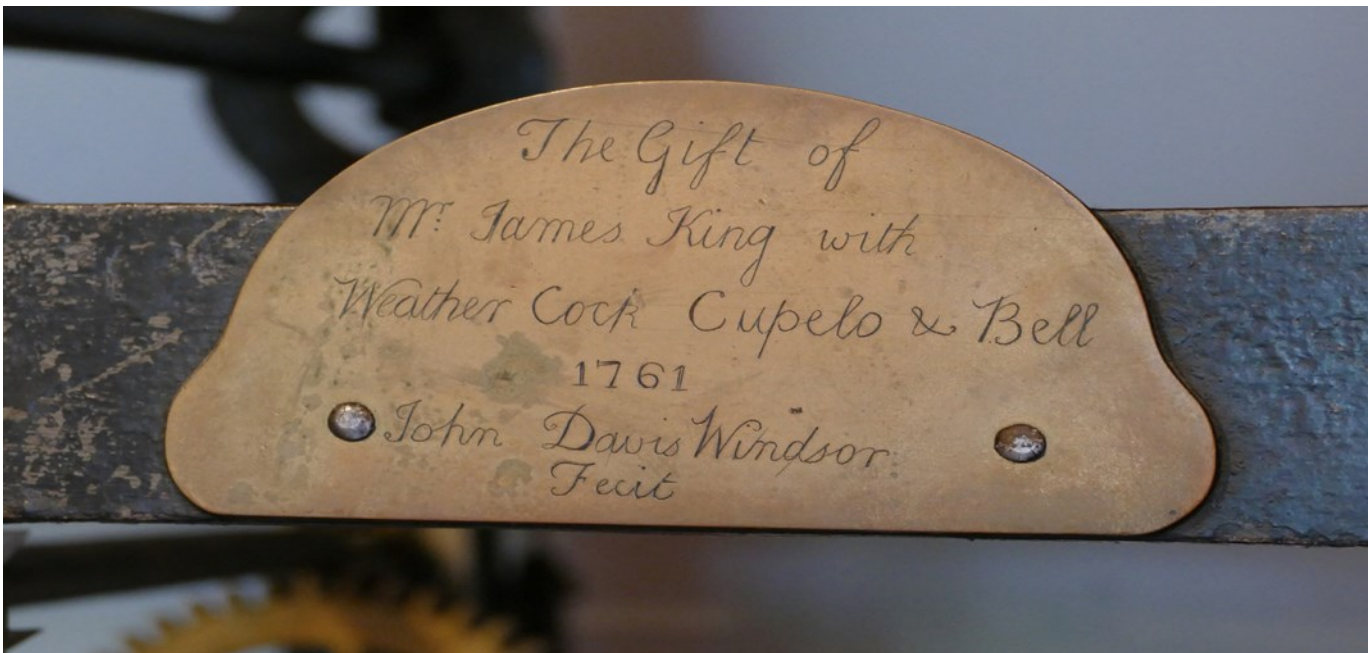 The Gift of
Mr. James King with
Weather Cock Cupelo & Bell
1761
John Davis Windsor
Fecit